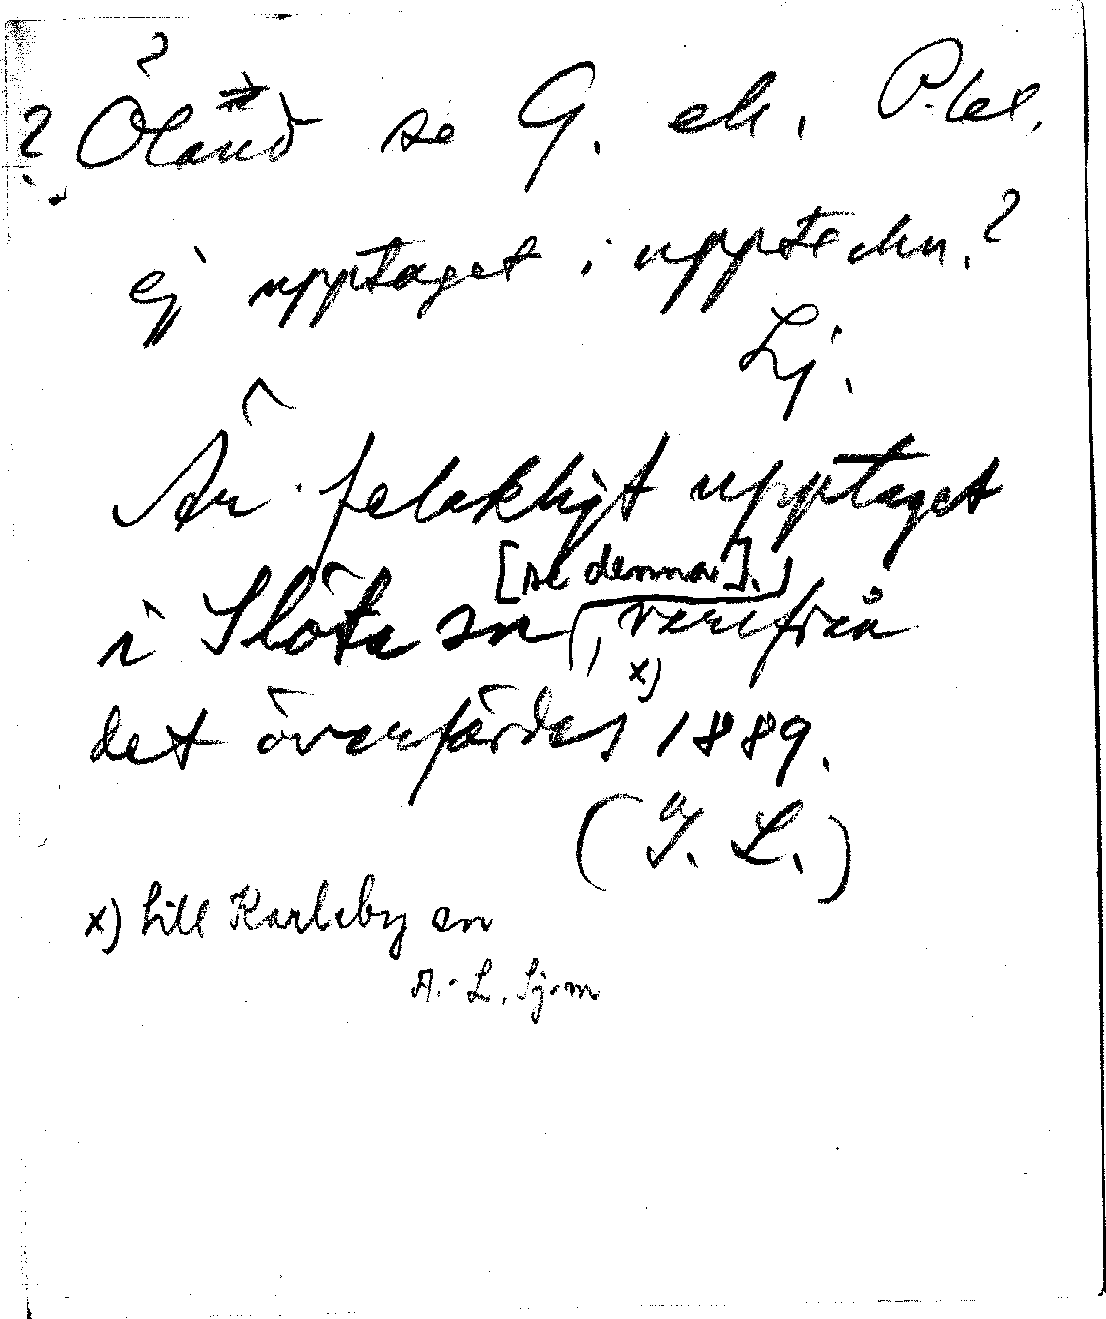 ?
? Öland se G. ek. P-bel.
ej upptaget i uppteckn.?
Lj.
Är felaktigt upptaget
[se denna].
i Slöta sn, varifrån
x)
det överfördes 1889.
(G. L.)
x) till Karleby sn
A.-L. Sj-m